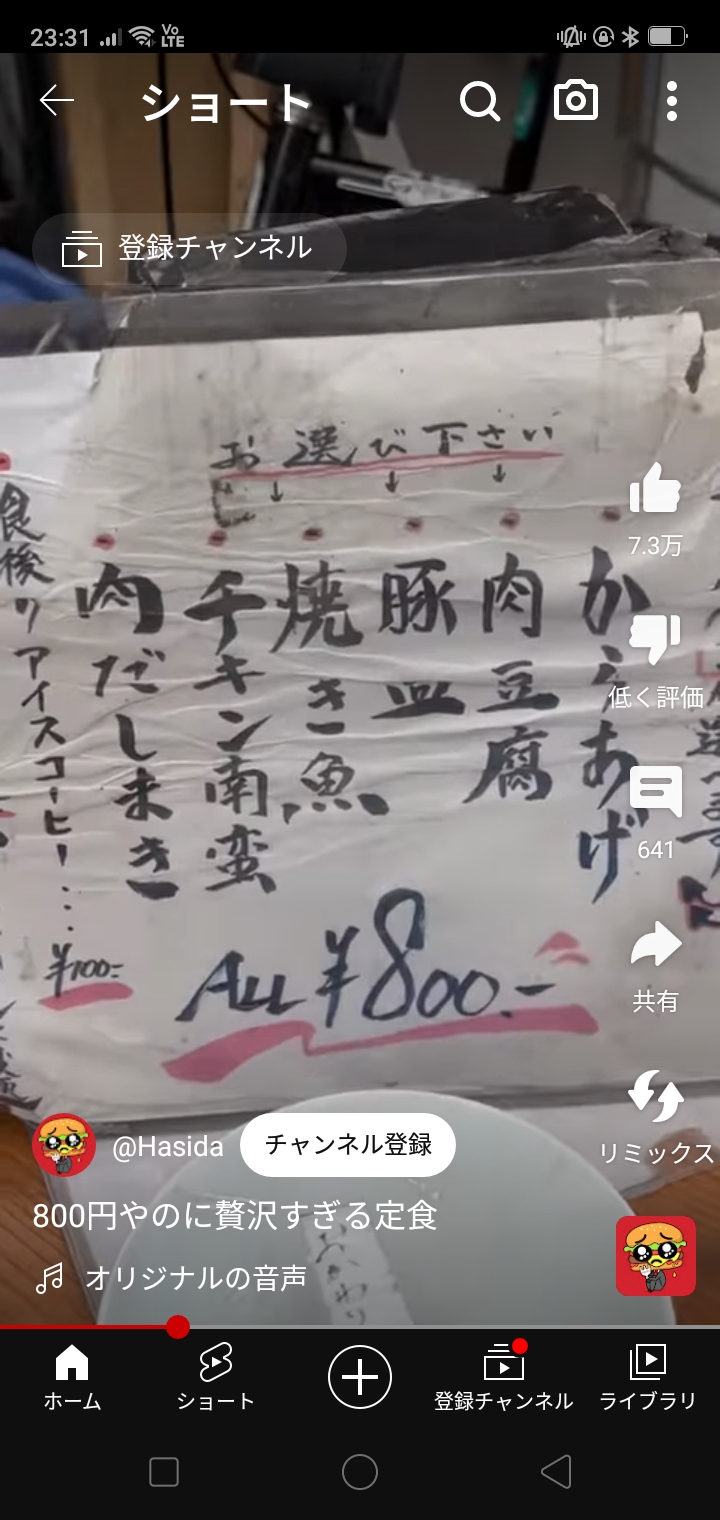 23:31
Vo
LTE
ショート
登録チャンネル
お選び下さい
↓ ↓ ↓
からあげ
肉豆腐
豚皿
焼き魚
チキン南蛮
肉だしまき
食後
アイスコーヒー…
¥100-
All ¥800.-
7.3万
低く評価
641
共有
リミックス
@Hasida
チャンネル登録
800円やのに贅沢すぎる定食
オリジナルの音声
おかわり
ホーム
ショート
登録チャンネル
ライブラリ